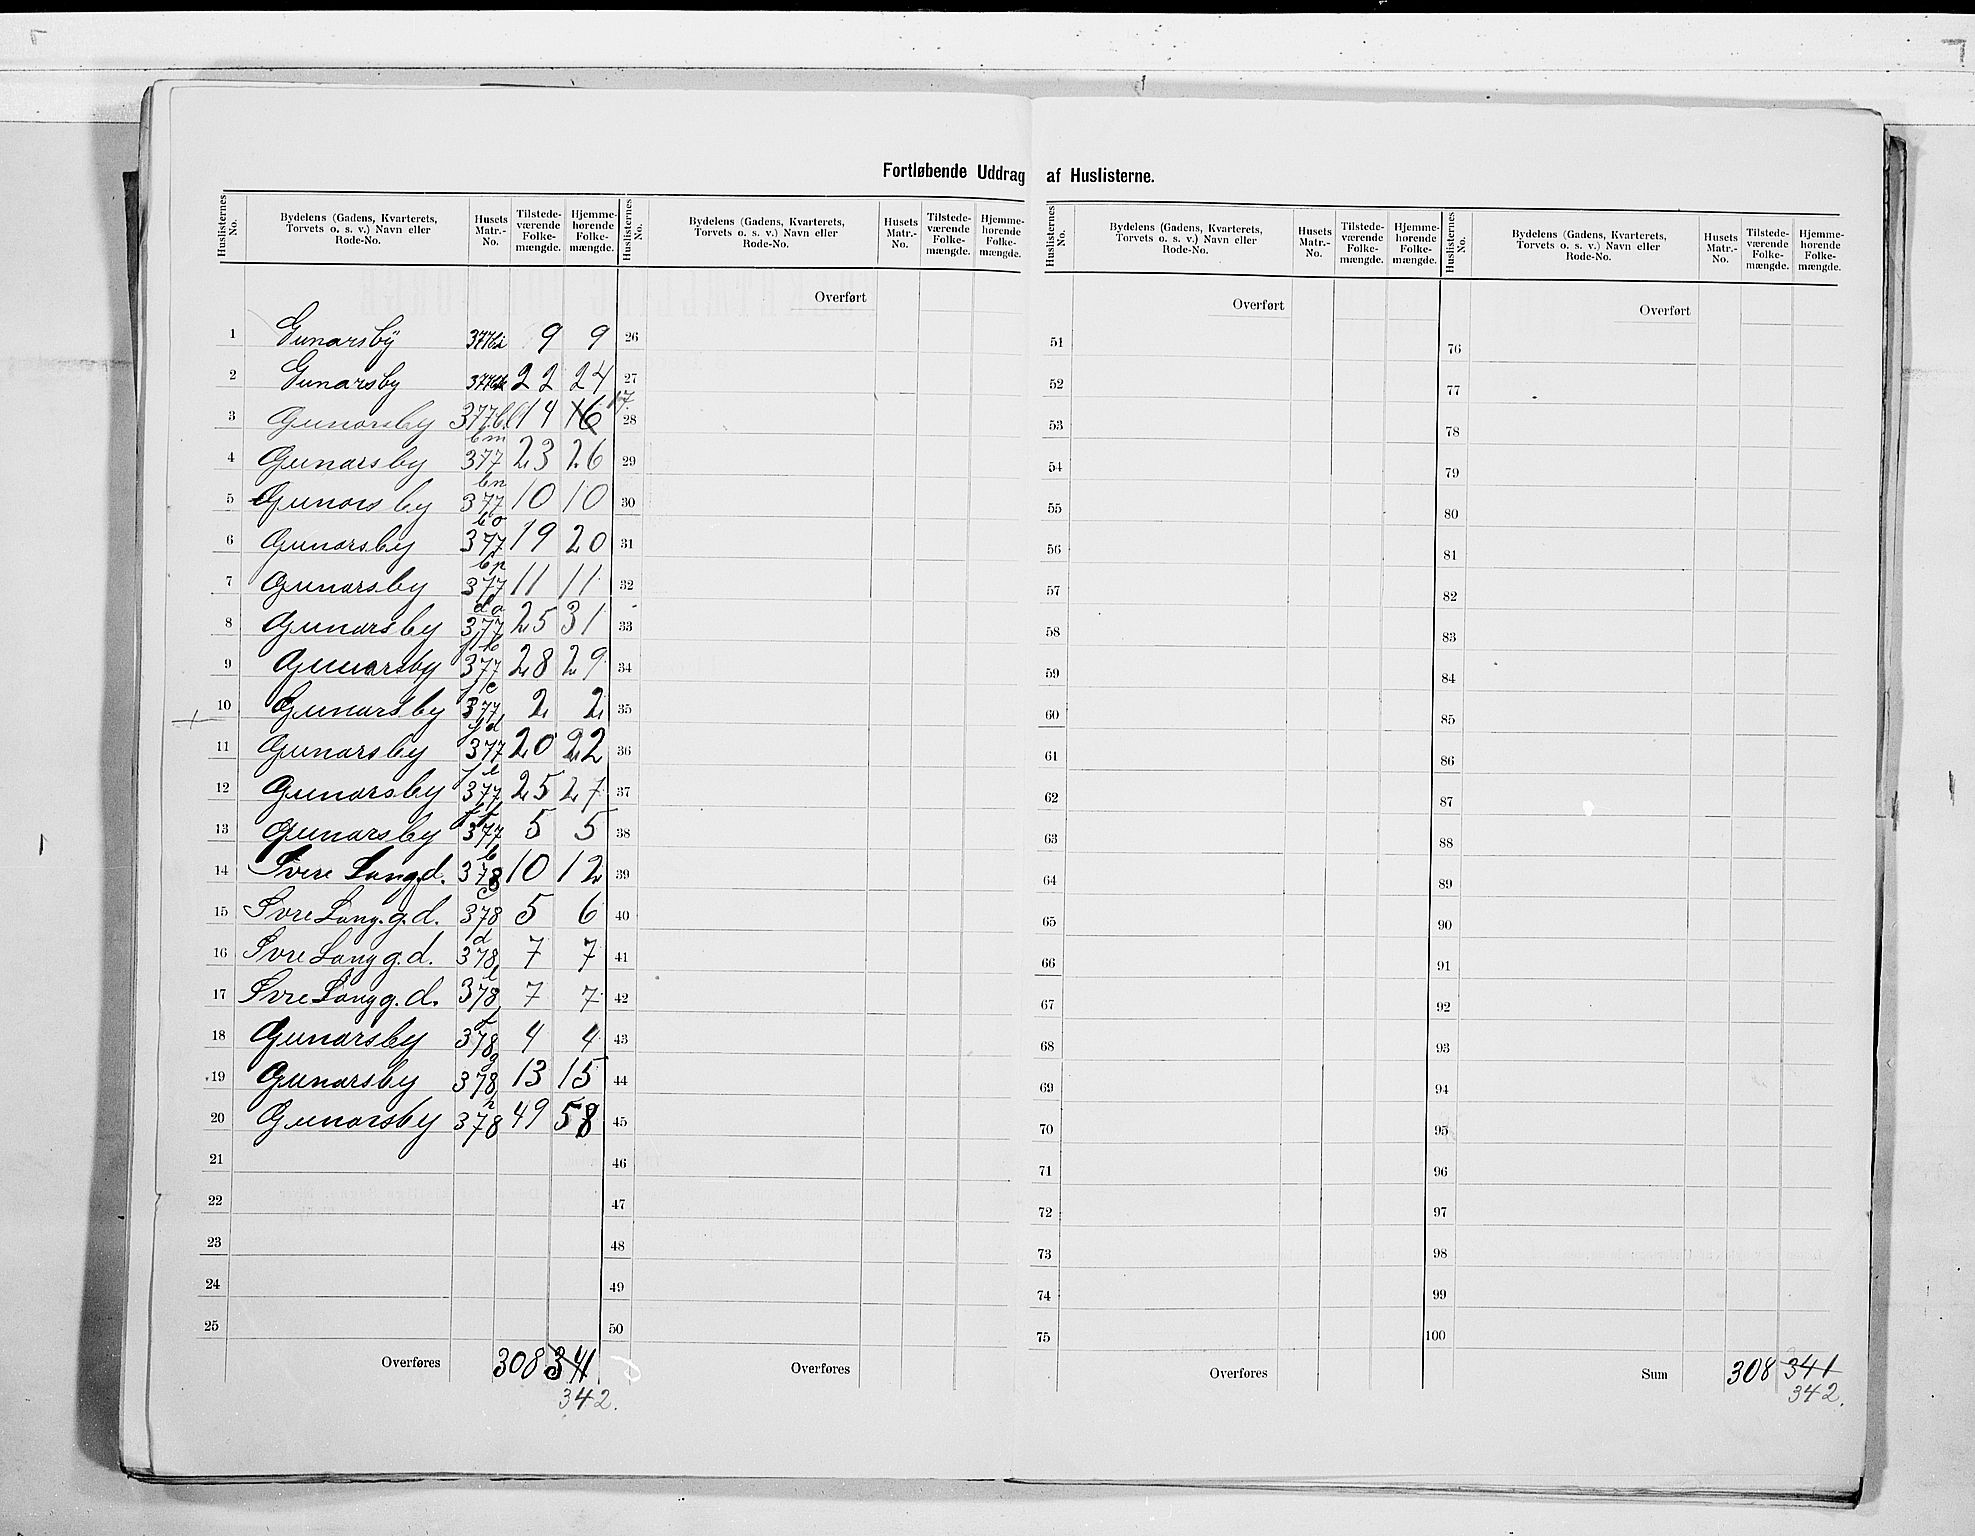 Fortløbende Uddrag af Huslisterne.
Huslisternes No. Bydelens (Gadens, Kvarterets, Torvets o. s. v.) Navn eller Rode-No. Husets Matr.-No. Tilstedeværende Folkemængde. Hjemmehørende Folkemængde.
Huslisternes No. Bydelens (Gadens, Kvarterets, Torvets o. s. v.) Navn eller Rode-No. Husets Matr.-No. Tilstedeværende Folkemængde. Hjemmehørende Folkemængde.
Huslisternes No. Bydelens (Gadens, Kvarterets, Torvets o. s. v.) Navn eller Rode-No. Husets Matr.-No. Tilstedeværende Folkemængde. Hjemmehørende Folkemængde.
Huslisternes No. Bydelens (Gadens, Kvarterets, Torvets o. s. v.) Navn eller Rode-No. Husets Matr.-No. Tilstedeværende Folkemængde. Hjemmehørende Folkemængde.
Overført Overført Overført
1 Gunarsby 377bi 9 9 26 51 76
2 Gunarsby 377bk 22 24 27 52 77
3 Gunarsby 377bl 14 16 17 28 53 78
4 Gunarsby 377 bm 23 26 29 54 79
5 Gunarsby 377 bn 10 10 30 55 80
6 Gunarsby 377 bo 19 20 31 56 81
7 Gunarsby 377 bp 11 11 32 57 82
8 Gunarsby 377 da 25 31 33 58 83
9 Gunarsby 377 28 29 34 59 84
10 Gunarsby 377 2 2 35 60 85
11 Gunarsby 377 20 22 36 61 86
12 Gunarsby 377 25 27 37 62 87
13 Gunarsby 377 5 5 38 63 88
14 Svere Langd. 378 b 10 12 39 64 89
15 Svre Lang.g.d. 378 c 5 6 40 65 90
16 Svre Langg.d. 378 d 7 7 41 66 91
17 Svre Langg.d. 378 e 7 7 42 67 92
18 Gunarsby 378 f 4 4 43 68 93
19 Gunarsby 378 g 13 15 44 69 94
20 Gunarsby 378 h 49 58 45 70 95
21 46 71 96
22 47 72 97
23 48 73 98
24 49 74 99
25 50 75 100
Overføres 308 341 Overføres Overføres Sum 308 341
342. 342.